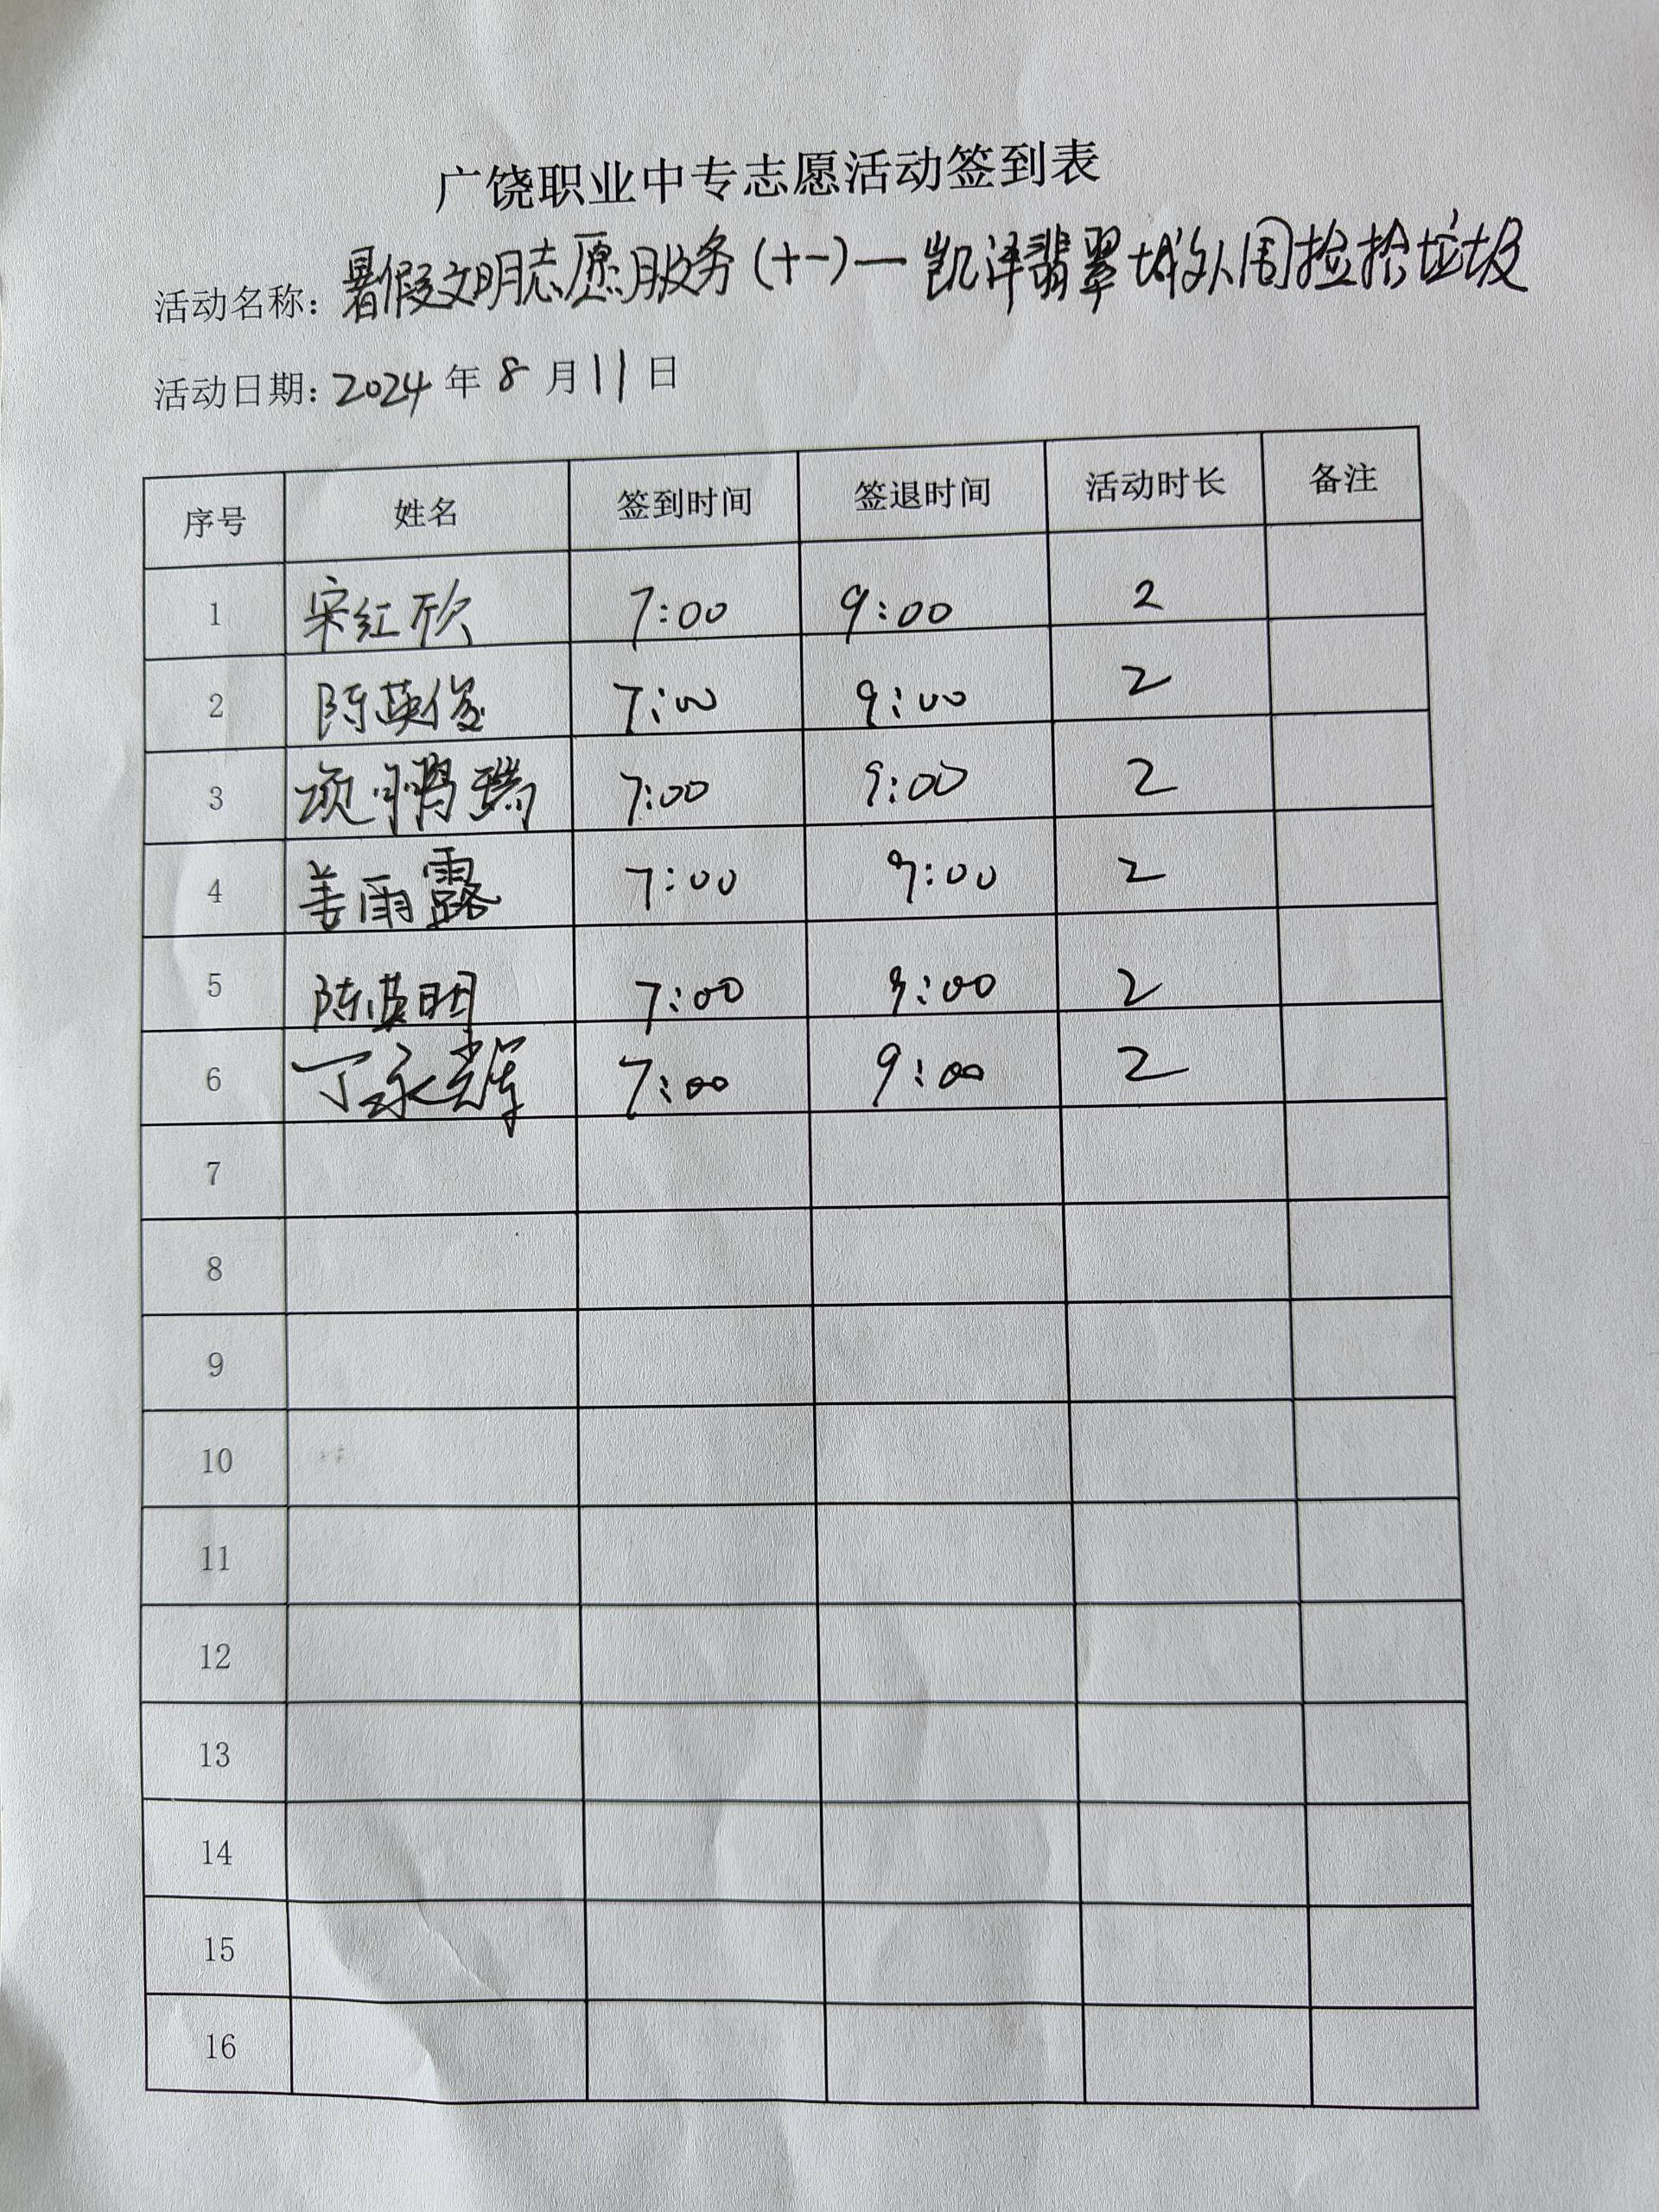 广饶职业中专志愿活动签到表
活动名称: 暑假文明志愿服务(十一)一凯泽翡翠城外围捡拾垃圾
活动日期: 2024 年 8 月 11 日
序号 姓名 签到时间 签退时间 活动时长 备注
1 宋红欣 7:00 9:00 2
2 陈英俊 7:00 9:00 2
3 7:00 9:00 2
4 姜雨露 7:00 9:00 2
5 陈英明 7:00 9:00 2
6 丁永辉 7:00 9:00 2
7
8
9
10
11
12
13
14
15
16